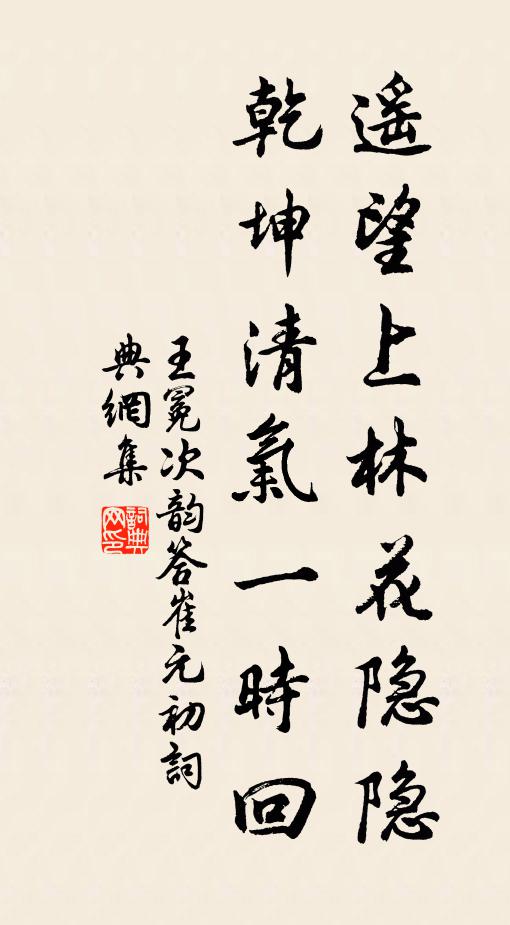 遥望上林花隐隐
乾坤清氣一時回
王冕次韵答崔元初詞
典網集
詞典
网印